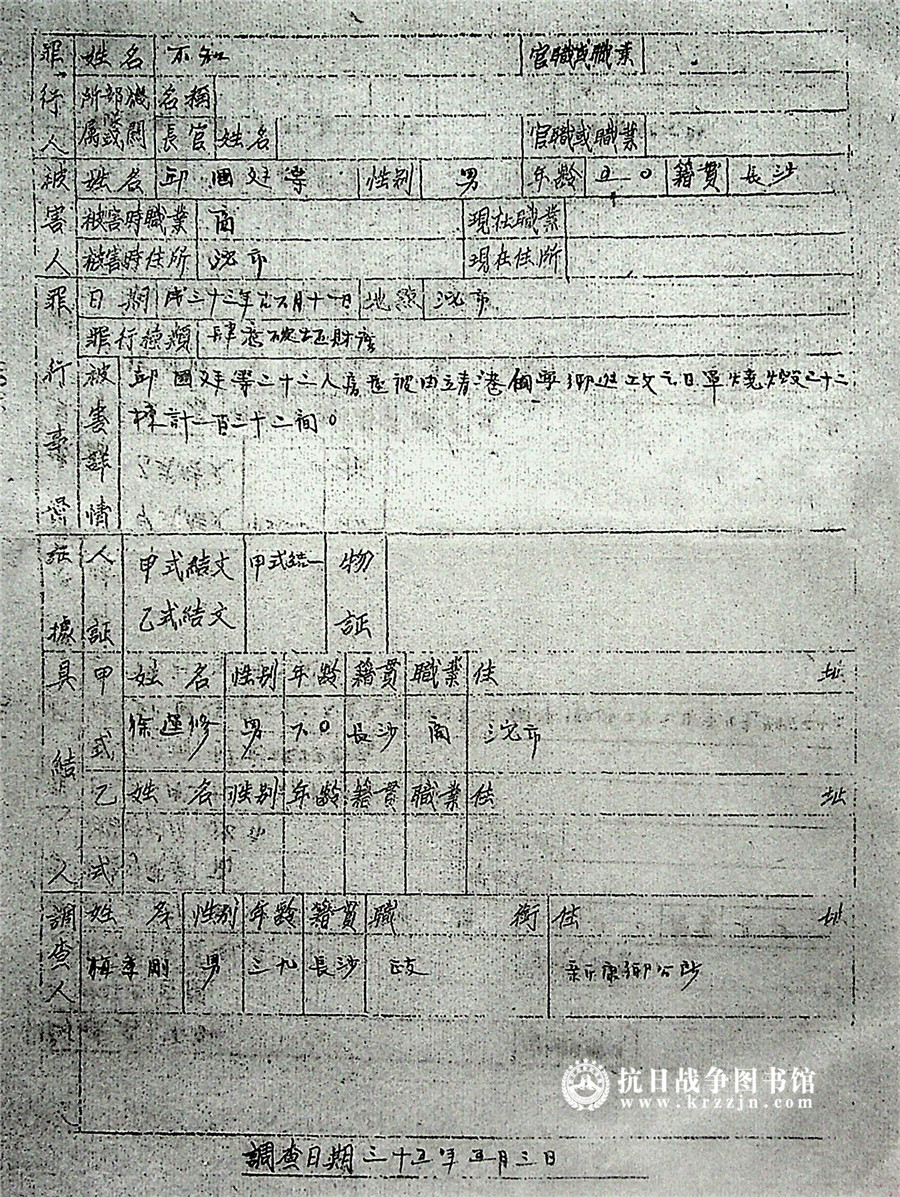 罪行人 姓名 不知 官職或職業
所部機 名稱
屬或關 長官 姓名 官職或職業
被害人 姓名 邱國廷等 性別 男 年齡 籍貫 長沙
被害時職業 商 現在職業
被害時住所 市 現在住所
罪行事實 日期 三十三年 月十一日 地點 市
罪行種類 肆意破壞財產
被害詳情 邱國廷等三十三人房屋被由 寧鄉進攻之日軍燒燬三十二
棟計一百三十二間。
証據 人証 甲式結文 甲式結一 物証
乙式結文
具結人 甲式 姓名 性別 年齡 籍貫 職業 住址
徐 修 男 六〇 長沙 商 市
乙式 姓名 性別 年齡 籍貫 職業 住址
調查人 姓名 性別 年齡 籍貫 職銜 住址
梅 剛 男 三九 長沙 新康鄉公所
抗日战争图书馆
www.krzzjn.com
調查日期 三十五年五月三日